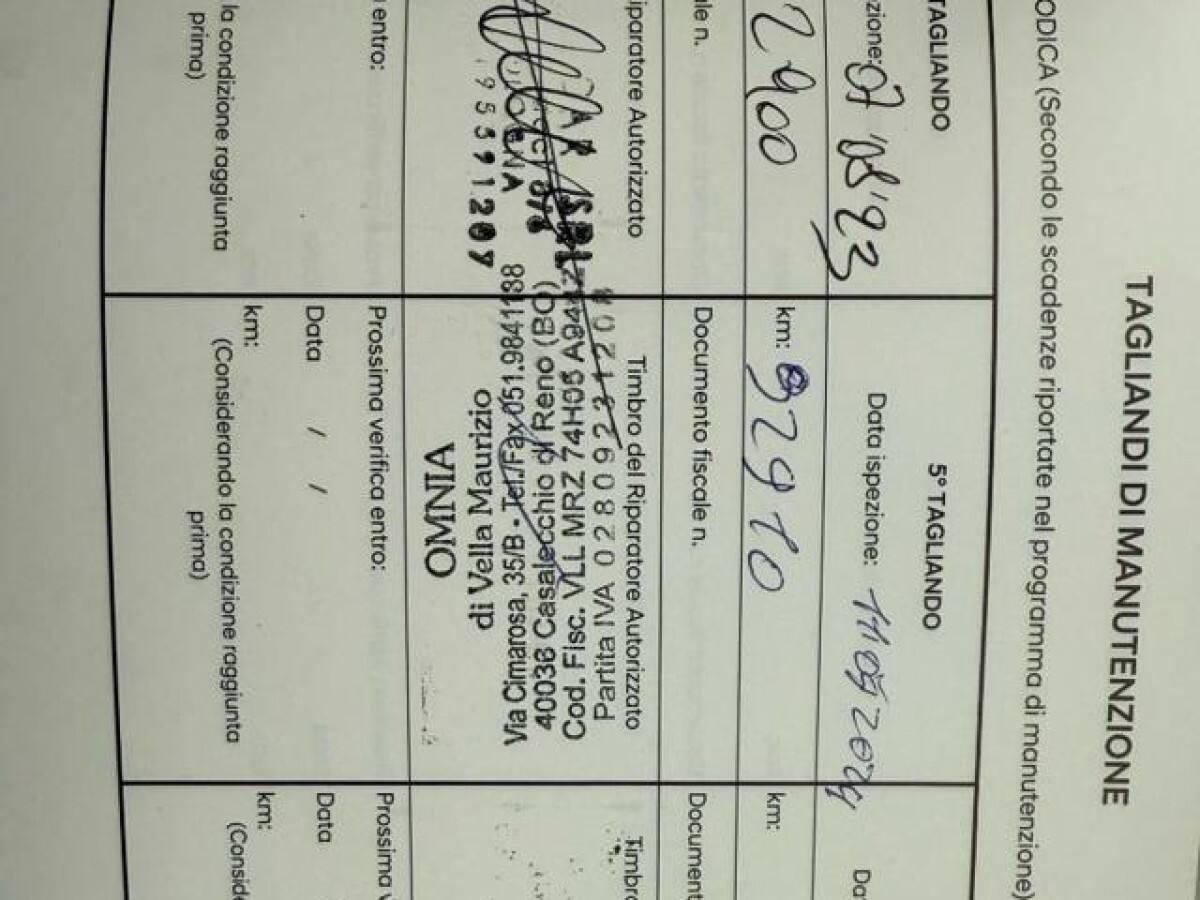 TAGLIANDI DI MANUTENZIONE
ODICA (Secondo le scadenze riportate nel programma di manutenzione)
TAGLIANDO
zione: 07 08'23
2900
ale n.
iparatore Autorizzato
95591209
a entro:
la condizione raggiunta
prima)
5° TAGLIANDO
Data ispezione: 11 05 2024
km: 92910
Documento fiscale n.
Timbro del Riparatore Autorizzato
OMNIA
di Vella Maurizio
Via Cimarosa, 35/B - Tel./Fax 051.984188
40038 Casalecchio di Reno (BO)
Cod. Fisc. VLL MRZ 74H06
Partita IVA 0280923120
Prossima verifica entro:
Data / /
km:
(Considerando la condizione raggiunta
prima)
Da
km:
Document
Timbro
Prossima v
Data
km:
(Conside